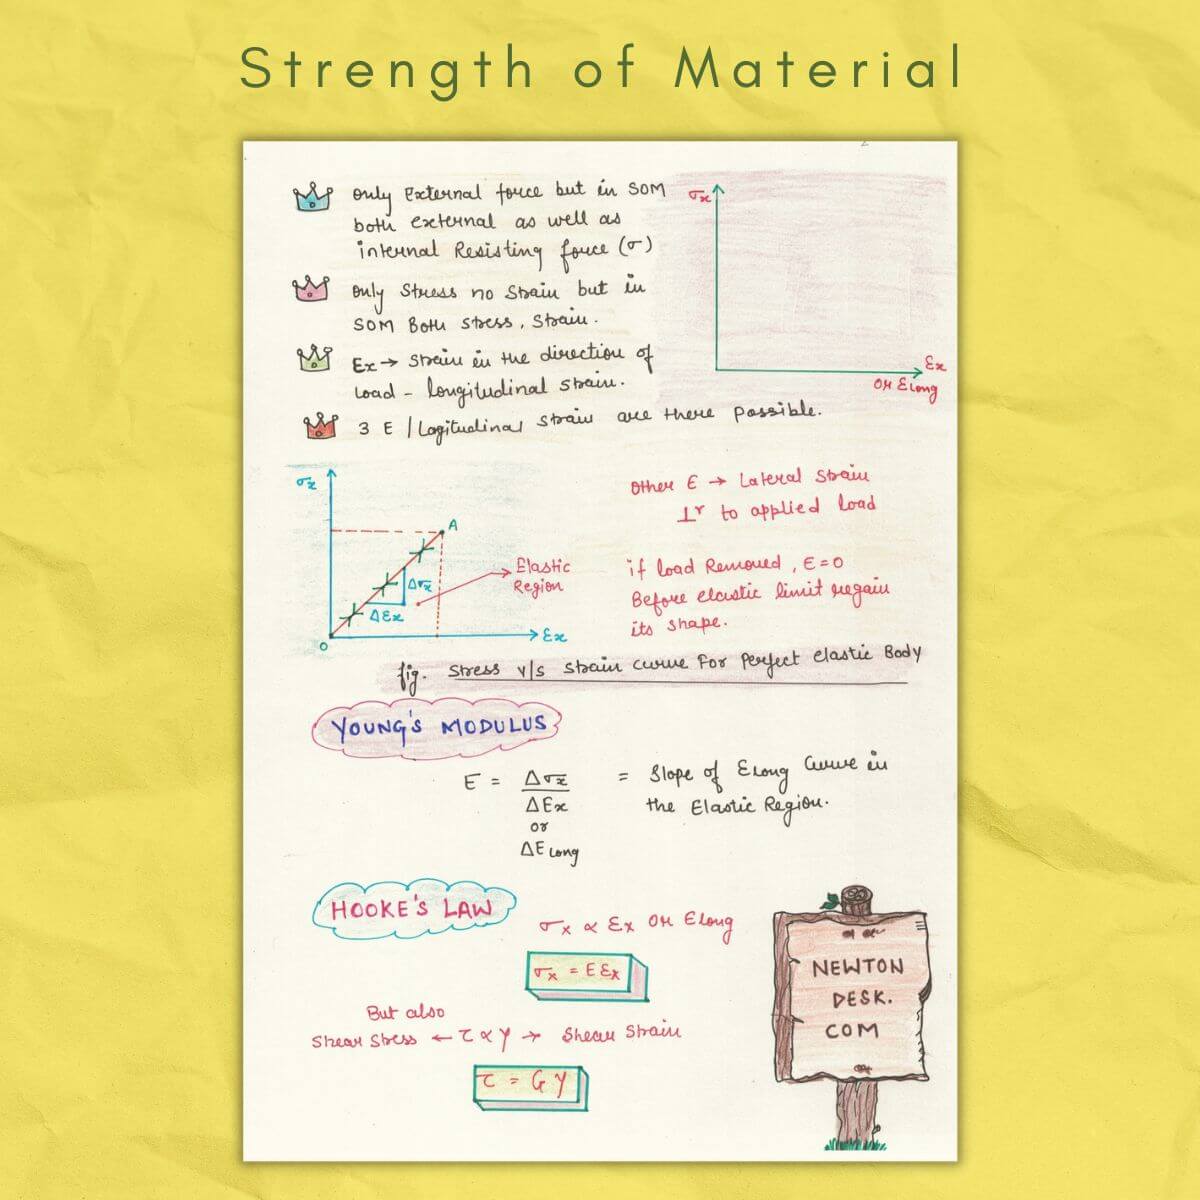 Strength of Material
Only External force but in SOM
both external as well as
internal Resisting force (σ)
Only Stress no Strain but in
SOM Both stress, Strain.
Ex → Strain in the direction of
Load - longitudinal strain.
3 E / Logitudinal strain are there possible.
σx
Ex
OR Elong
σx
A
Elastic
Region
Δσx
ΔEx
O
Ex
Other E → Lateral Strain
⊥r to applied load
if load Removed, E=0
Before elastic limit regain
its shape.
fig. Stress v/s Strain curve For Perfect elastic Body
YOUNG'S MODULUS
E = Δσx / ΔEx = Slope of Elong Curve in
or
ΔE Long
the Elastic Region.
HOOKE'S LAW
σx ∝ Ex OR Elong
σx = E Ex
But also
Shear Stress ← τ ∝ γ → Shear Strain
τ = G γ
NEWTON
DESK.
COM